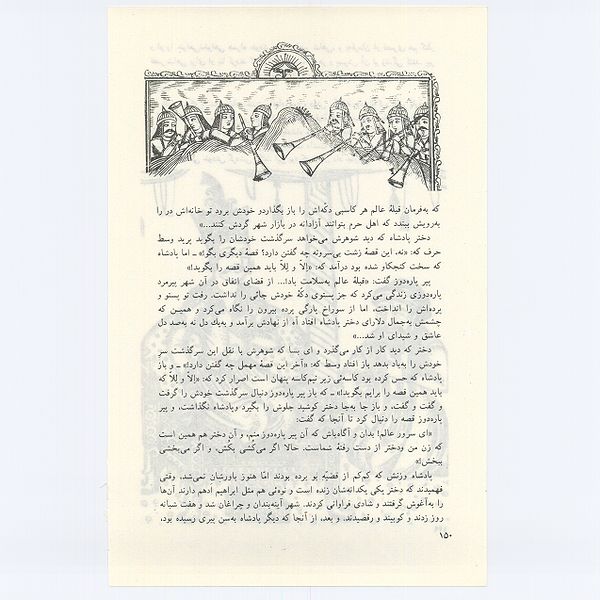 که به‌فرمان قبلهٔ عالم هر کاسبی دکّه‌اش را باز بگذاردو خودش برود تو خانه‌اش در را
به‌رویش ببندد که اهل حرم بتوانند آزادانه در بازار شهر گردش کنند...»
دختر پادشاه که دید شوهرش می‌خواهد سرگذشت خودشان را بگوید پرید وسط
حرف که: «نه، این قصهٔ زشت بی‌سروته چه گفتن دارد؟ قصهٔ دیگری بگو!» ــ اما پادشاه
که سخت کنجکاو شده بود درآمد که: «اِلّا وَ لِلّا باید همین قصه را بگوید!»
پیر پاره‌دوز گفت: «قبلهٔ عالم به‌سلامت باد!... از قضای اتفاق در آن شهر پیرمرد
پاره‌دوزی زندگی می‌کرد که جز پستوی دکّهٔ خودش جائی را نداشت. رفت تو پستو و
پرده‌اش را انداخت، اما از سوراخ پارگی پرده بیرون را نگاه می‌کرد و همین که
چشمش به‌جمال دلارای دختر پادشاه افتاد آه از نهادش برآمد و به‌یك دل نه به‌صد دل
عاشق و شیدای او شد...»
دختر که دید کار از کار می‌گذرد و ای بسا که شوهرش با نقل این سرگذشت سرِ
خودش را به‌باد بدهد باز افتاد وسط که: «آخر این قصهٔ مهمل چه گفتن دارد!» ــ و باز
پادشاه که حس کرده بود کاسه‌ئی زیر نیم‌کاسه پنهان است اصرار کرد که: «اِلّا وَ لِلّا که
باید همین قصه را برایم بگوید!» ــ که باز پیر پاره‌دوز دنبال سرگذشت خودش را گرفت
و گفت و گفت، و باز جا به‌جا دختر کوشید جلوش را بگیرد وپادشاه نگذاشت، و پیر
پاره‌دوز قصه را دنبال کرد تا آنجا که گفت:
«ای سرور عالم! بدان و آگاه‌باش که آن پیر پاره‌دوز منم، و آن دختر هم همین است
که زن من ودختر از دست رفتهٔ شماست. حالا اگر می‌کُشی بکُش، و اگر می‌بخشی
ببخش!»
پادشاه وزنش که کم‌کم از قضیّه بو برده بودند امّا هنوز باورشان نمی‌شد، وقتی
فهمیدند که دختر یکی یکدانه‌شان زنده است و نوه‌ئی هم مثل ابراهیم ادهم دارند آن‌ها
را به‌آغوش گرفتند و شادی فراوانی کردند. شهر آینه‌بندان و چراغان شد و هفت شبانه
روز زدند و کوبیدند و رقصیدند. و بعد، از آنجا که دیگر پادشاه به‌سن پیری رسیده بود،
۱۵۰